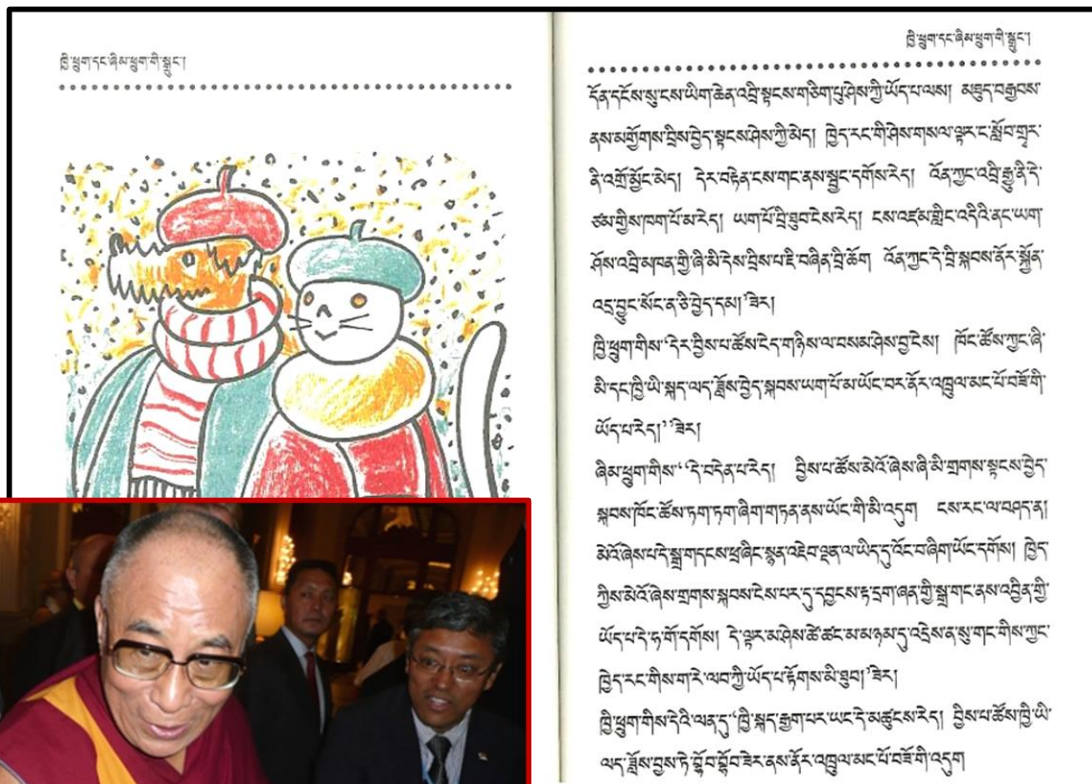 ཁྱི་ཕྲུག་དང་ཞིམ་ཕྲུག་གི་སྒྲུང་།
ཁྱི་ཕྲུག་དང་ཞིམ་ཕྲུག་གི་སྒྲུང་།
དོན་དངོས་སུ་ངས་ཡིག་ཆེན་འབྲི་སྟངས་གཅིག་པུ་ཤེས་ཀྱི་ཡོད་པ་ལས། མཐུད་བརྒྱབས་
ནས་མགྱོགས་བྲིས་བྱེད་སྟངས་ཤེས་ཀྱི་མེད། ཁྱེད་རང་གི་ཤེས་གསལ་ལྟར་ང་སློབ་གྲྭར་
ནི་འགྲོ་མྱོང་མེད། དེར་བརྟེན་ངས་གང་ནས་སྦྱང་དགོས་རེད། འོན་ཀྱང་འབྲི་རྒྱུ་ནི་དེ་
ཙམ་གྱིས་ཁག་པོ་མ་རེད། ཡག་པོ་བྲི་ཐུབ་ངེས་རེད། ངས་འཛམ་གླིང་འདིའི་ནང་ཡག་
ཤོས་འབྲི་མཁན་གྱི་ཞི་མི་དེས་བྲིས་པ་ཇི་བཞིན་བྲི་ཆོག འོན་ཀྱང་དེ་བྲི་སྐབས་ནོར་སྐྱོན་
འདྲ་བྱུང་སོང་ན་ཅི་བྱེད་དམ།་་ཟེར།
ཁྱི་ཕྲུག་གིས་‘དེར་བྱིས་པ་ཚོས་ངེད་གཉིས་ལ་བསམ་ཤེས་བྱ་ངེས། ཁོང་ཚོས་ཀྱང་ཞི་
མི་དང་ཁྱི་ཡི་སྐད་ལད་ཟློས་བྱེད་སྐབས་ཡག་པོ་མ་ཡོང་བར་ནོར་འཁྲུལ་མང་པོ་བཟོ་གི་
ཡོད་པ་རེད།’’ཟེར།
ཞིམ་ཕྲུག་གིས་‘‘དེ་བདེན་པ་རེད། བྱིས་པ་ཚོས་མེའོ་ཞེས་ཞི་མི་གྲགས་སྟངས་བྱེད་
སྐབས་ཁོང་ཚོས་ཏག་ཏག་ཞིག་གཏན་ནས་ཡོང་གི་མི་འདུག ངས་རང་ལ་བཤད་ན།
མེའོ་ཞེས་པ་དེ་སྒྲ་གདངས་ཕྲ་ཞིང་སྙན་འཇེབ་ལྡན་ལ་ཡིད་དུ་འོང་བ་ཞིག་ཡོང་དགོས། ཁྱེད་
ཀྱིས་མེའོ་ཞེས་གྲགས་སྐབས་ངེས་པར་དུ་དབྱངས་རྟ་དྲག་ཞན་གྱི་སྒྲ་གང་ནས་འབྱིན་གྱི་
ཡོད་པ་དེ་ཧ་གོ་དགོས། དེ་ལྟར་མ་ཤེས་ཚེ་ཚང་མ་མཉམ་དུ་འདྲེས་ན་སུ་གང་གིས་ཀྱང་
ཁྱེད་རང་གིས་ག་རེ་ལབ་ཀྱི་ཡོད་པ་རྟོགས་མི་ཐུབ།’ཟེར།
ཁྱི་ཕྲུག་གིས་དེའི་ལན་དུ་‘ཁྱི་སྐད་རྒྱག་པར་ཡང་དེ་མཚུངས་རེད། བྱིས་པ་ཚོས་ཁྱི་ཡི་
ལད་ཟློས་བྱས་ཏེ་ཟེར་ནས་ནོར་འཁྲུལ་མང་པོ་བཟོ་གི་འདུག